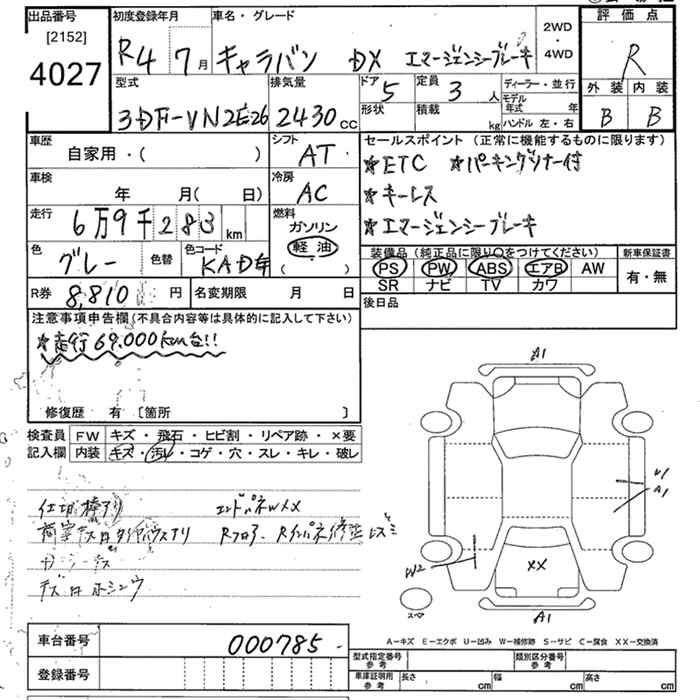 出品番号
[2152]
4027
初度登録年月
R4 7月
車名・グレード
キャラバン DX エマージェンシーブレーキ
2WD
・
4WD
評価点
R
外装 内装
B B
型式
3DF-VN2E26
排気量
2430cc
ドア 5
形状
定員 3人
積載 kg
ディーラー・並行
モデル年式 年
ハンドル 左・右
車歴
自家用・( )
シフト
AT
車検
年 月( 日)
冷房
AC
走行
6万9千283km
燃料
ガソリン
軽油
( )
色
グレー
色替
色コード
KAD
R券 8,810円
名変期限 月 日
セールスポイント (正常に機能するものに限ります)
★ETC ★パーキングソナー付
★キーレス
★エマージェンシーブレーキ
装備品 (純正品に限り〇をつけてください)
PS PW ABS エアB AW
SR ナビ TV カワ
新車保証書
有・無
後日品
注意事項申告欄(不具合内容等は具体的に記入して下さい)
★走行69.000km台!!
修復歴 有 〔箇所 〕
検査員
記入欄
FW キズ・飛石・ヒビ割・リペア跡・×要
内装 キズ・汚レ・コゲ・穴・スレ・キレ・破レ
エンドパネWXX
Rフロア、Rインパネ修正
A1
U1
A1
W2
XX
スペア
A1
A−キズ E−エクボ U−凹み W−補修跡 S−サビ C−腐食 XX−交換済
車台番号
000785
登録番号
型式指定番号
参考
類別区分番号
参考
車庫証明用
参考
長さ cm
幅 cm
高さ cm